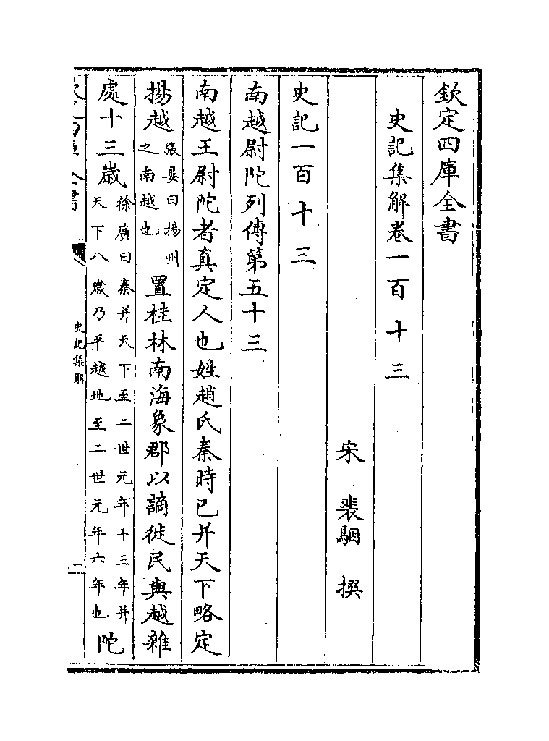 欽定四庫全書
史記集解卷一百十三
宋 裴駰 撰
史記一百十三
南越尉陀列傳第五十三
南越王尉陀者真定人也姓趙氏秦時已并天下略定
揚越張晏曰揚州之南越也置桂林南海象郡以謫徙民與越雜
處十三歲徐廣曰秦并天下至二世元年十三年并天下八歲乃平越地至二世元年六年也陀
史記集解